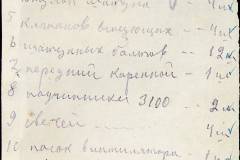 втулок шатуна - 4 шт
5 Клапанов впускающ - - 4 шт
6 шатунных болтов - - 12 к
7 передний коренной - 1 шт
8 подшипники 3100 - - 2 к
9 свечей - - - - 4 шт
10 пасок вентилятора - 1 шт